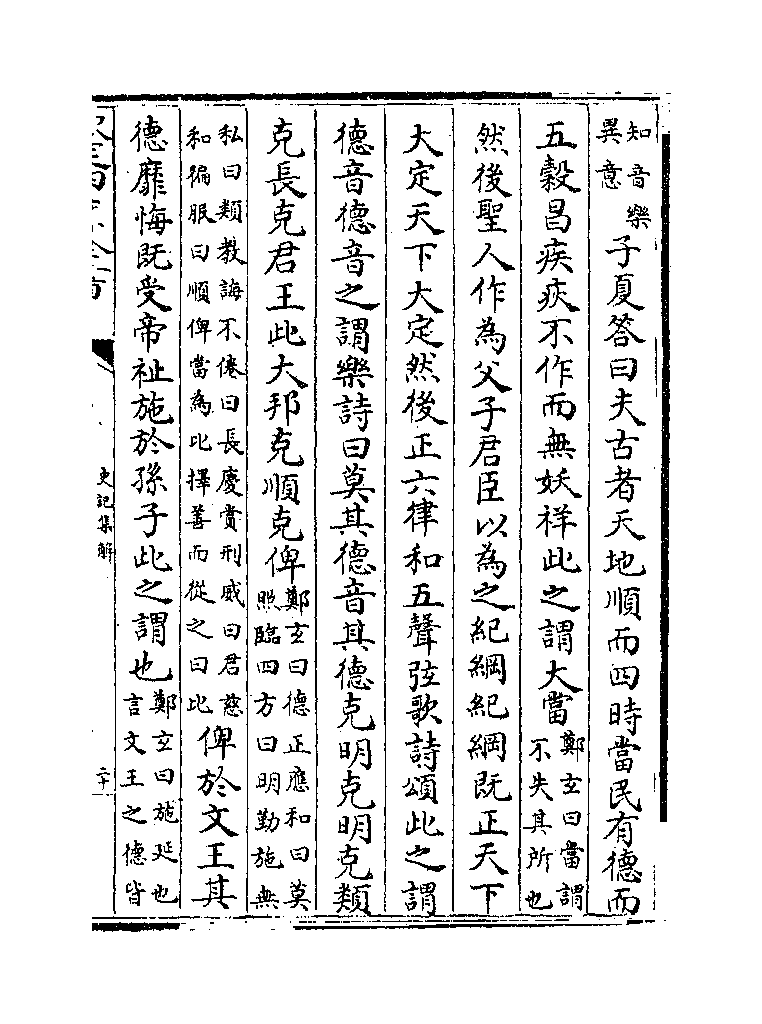 知音樂異意子夏答曰夫古者天地順而四時當民有德而
五穀昌疾疢不作而無妖祥此之謂大當鄭玄曰當謂不失其所也
然後聖人作為父子君臣以為之紀綱紀綱既正天下
大定天下大定然後正六律和五聲弦歌詩頌此之謂
德音德音之謂樂詩曰莫其德音其德克明克明克類
克長克君王此大邦克順克俾鄭玄曰德正應和曰莫照臨四方曰明勤施無
私曰類教誨不倦曰長慶賞刑威曰君慈和徧服曰順俾當為比擇善而從之曰比俾於文王其
德靡悔既受帝祉施於孫子此之謂也鄭玄曰施延也言文王之德皆
史記集解
二十